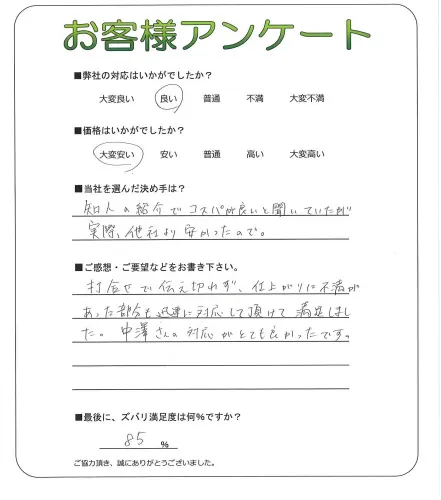 お客様アンケート
■弊社の対応はいかがでしたか?
大変良い 良い 普通 不満 大変不満
■価格はいかがでしたか?
大変安い 安い 普通 高い 大変高い
■当社を選んだ決め手は?
知人の紹介でコスパが良いと聞いていたが
実際、他社より安かったので。
■ご感想・ご要望などをお書き下さい。
打合せで伝え切れず、仕上がりに不満が
あった部分も迅速に対応して頂けて満足しまし
た。中澤さんの対応がとても良かったです。
■最後に、ズバリ満足度は何%ですか?
85 %
ご協力頂き、誠にありがとうございました。